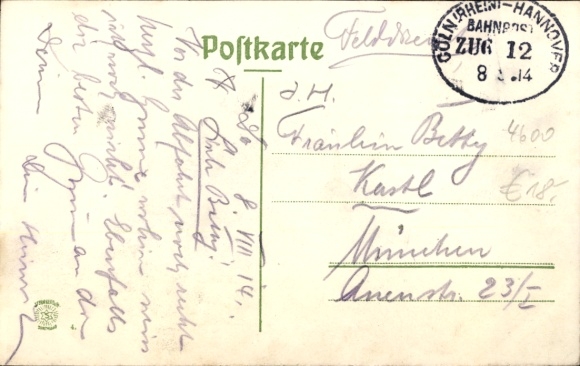 Postkarte
Feldpost
CÖLN (RHEIN)-HANNOVER
BAHNPOST
ZUG 12
8 14
S. H.
Fräulein Betty
Kastl
München
Auenstr. 23/I
4600
€ 18.-
8. VIII 14.
Lieb Betty!
Vor der Abfahrt noch recht
herzl. Grüsse wohin weiss
ich noch nicht! Ebenfalls
die besten an die
Dein